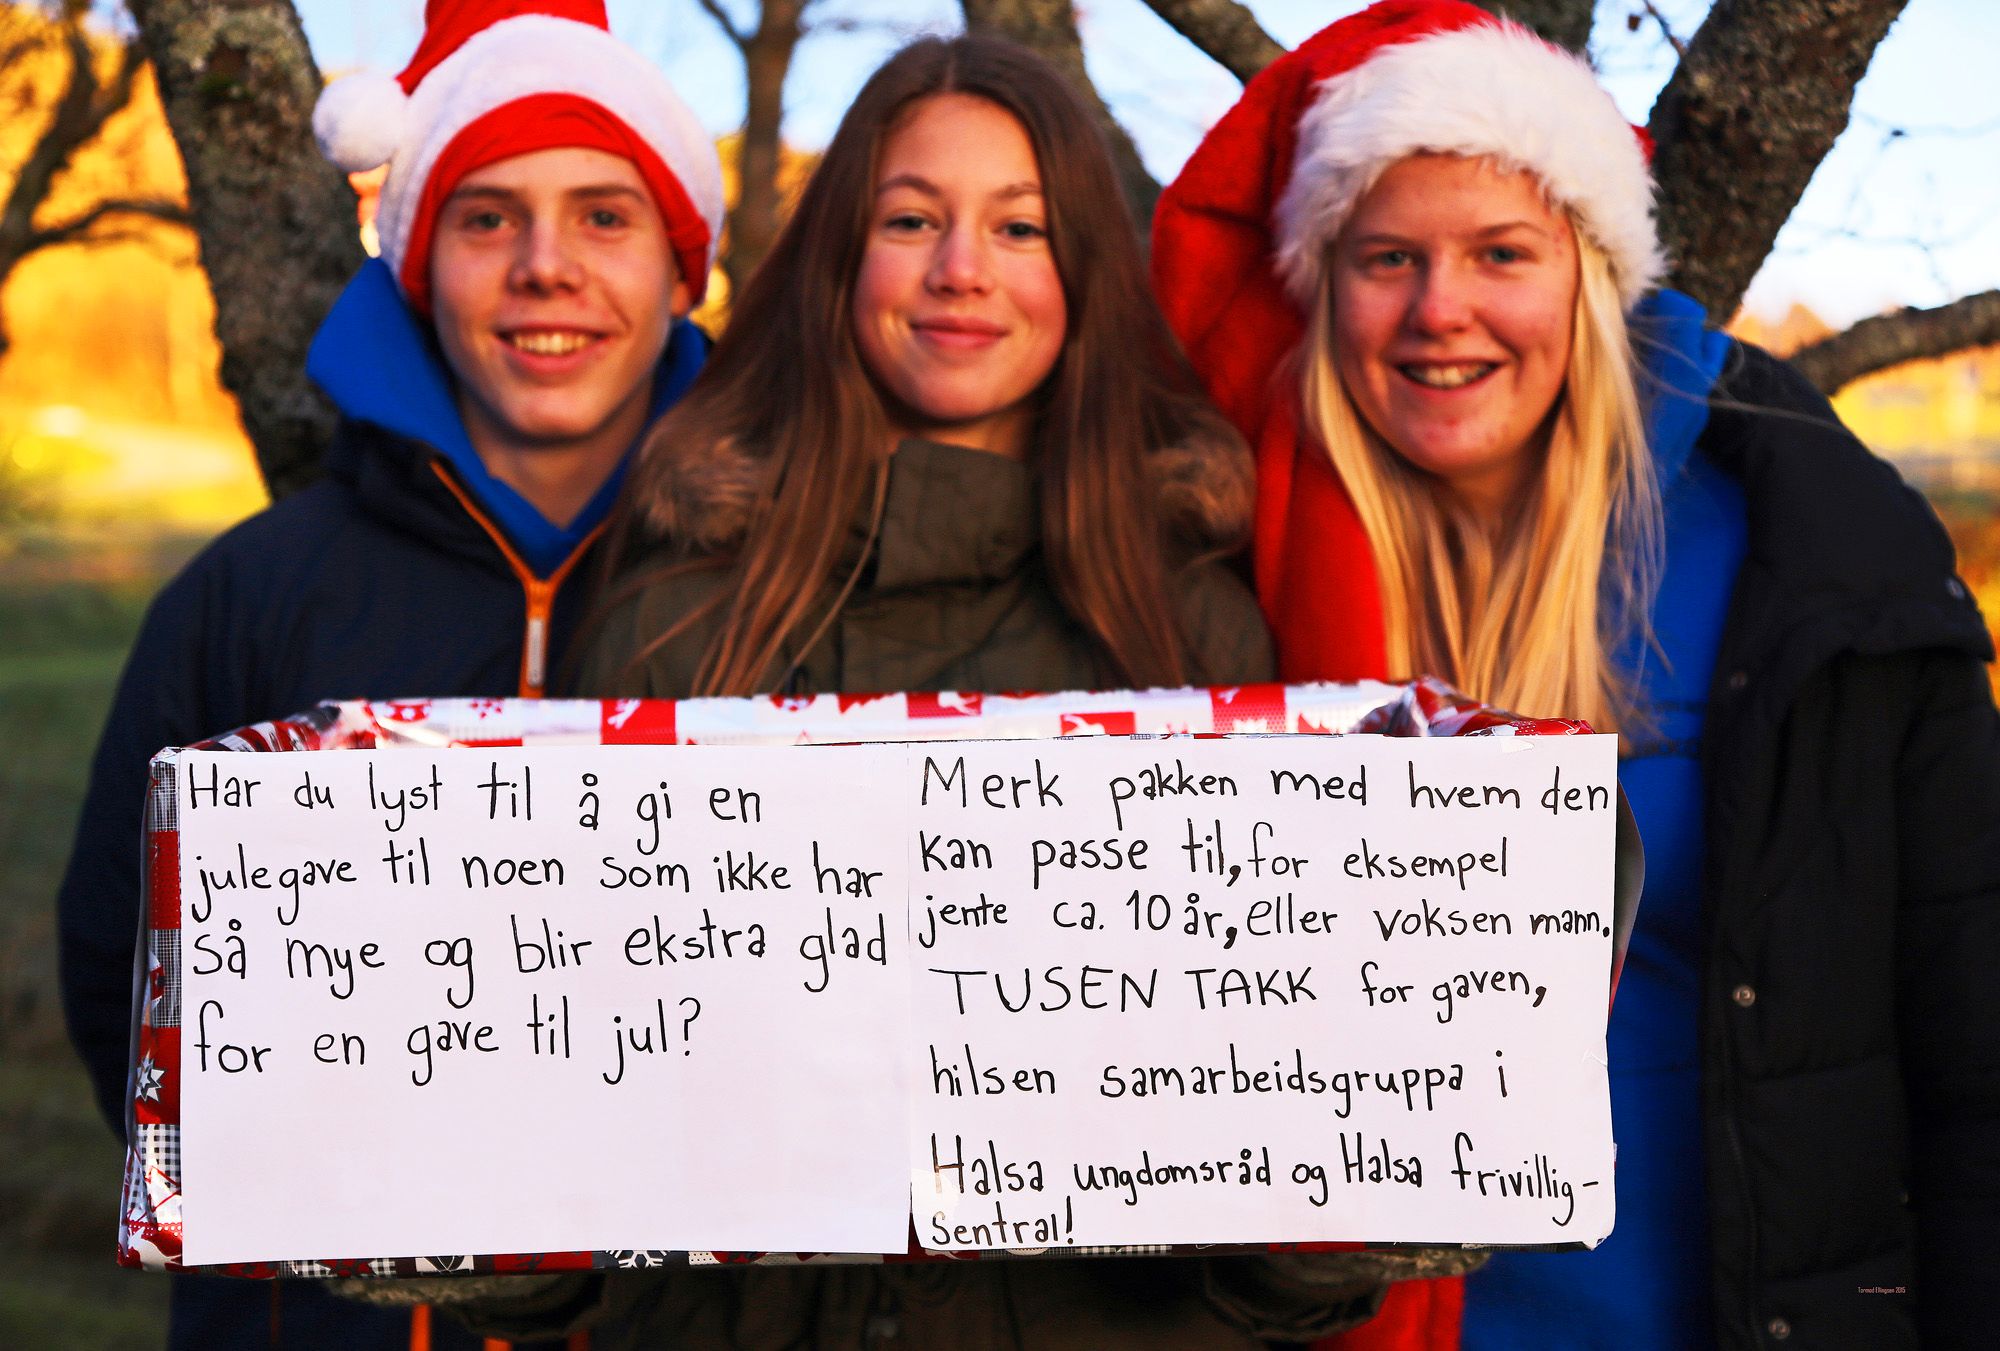 Har du lyst til å gi en
julegave til noen som ikke har
så mye og blir ekstra glad
for en gave til jul?
Merk pakken med hvem den
kan passe til, for eksempel
jente ca. 10 år, eller voksen mann.
TUSEN TAKK for gaven,
hilsen samarbeidsgruppa i
Halsa ungdomsråd og Halsa frivillig-
sentral!
Tormod Ellingsen 2015